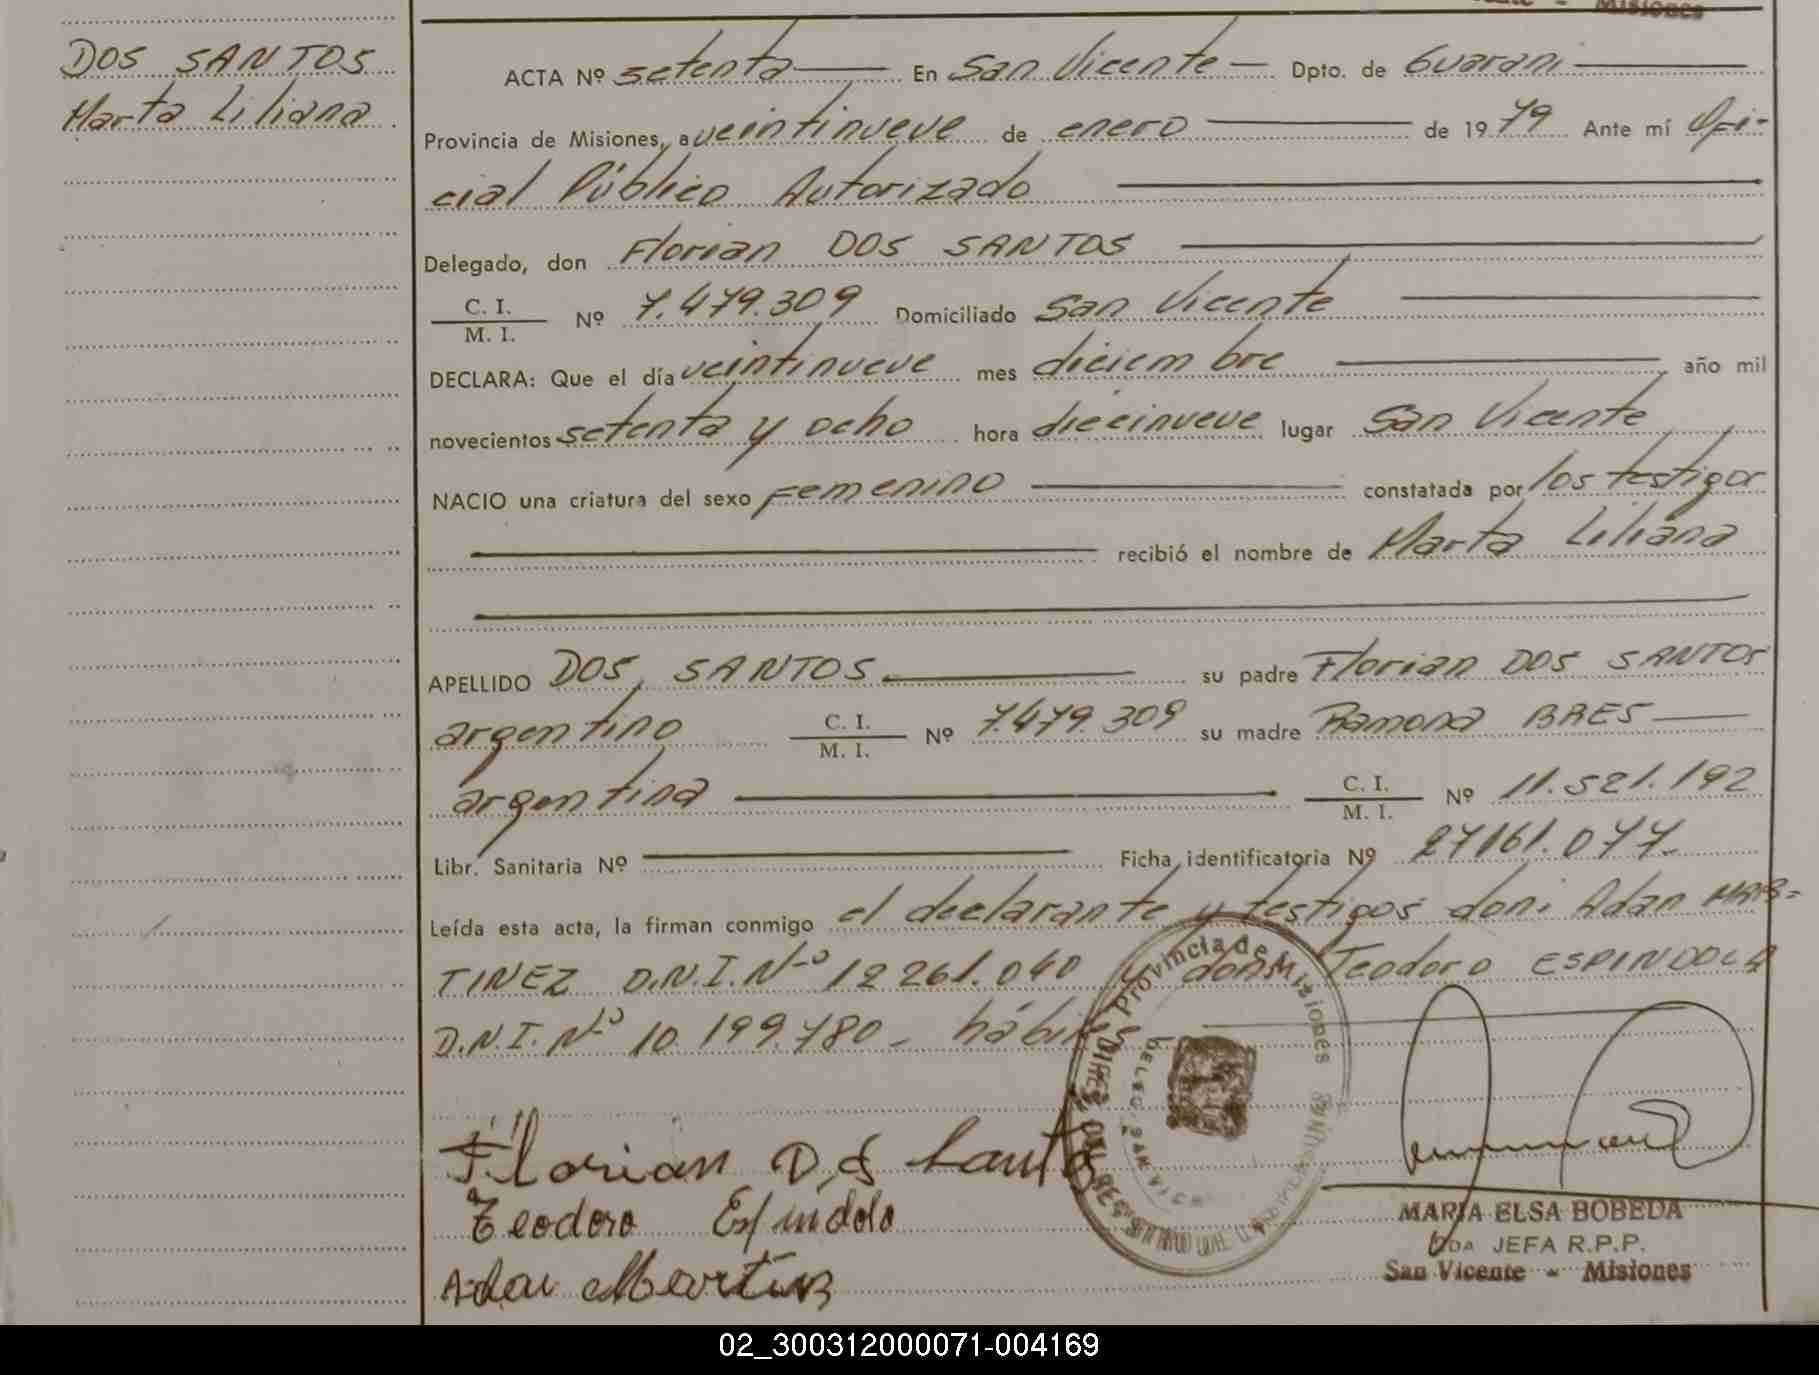 DOS SANTOS
Marta Liliana
ACTA Nº setenta En San Vicente Dpto. de Guarani
Provincia de Misiones, a veintinueve de enero de 1979 Ante mí Ofi-
cial Público Autorizado
Delegado, don Florian DOS SANTOS
C. I.
M. I. Nº 7.479.309 Domiciliado San Vicente
DECLARA: Que el día veintinueve mes diciembre año mil
novecientos setenta y ocho hora diecinueve lugar San Vicente
NACIO una criatura del sexo femenino constatada por los testigos
recibió el nombre de Marta Liliana
APELLIDO DOS SANTOS su padre Florian DOS SANTOS
argentino C. I.
M. I. Nº 7.479.309 su madre Ramona BAES
argentina C. I.
M. I. Nº 11.521.192
Libr. Sanitaria Nº Ficha identificatoria Nº 27161.077
Leída esta acta, la firman conmigo el declarante y testigos don: Adan MAR=
TINEZ D.N.I. Nº 12261.040 y don: Teodoro ESPINDOLA
D.N.I. Nº 10.199.780 - hábiles
Provincia de Misiones
DELEG. SAN VIC
Florian D,S Santo
Teodoro Espindola
Adan Martinz
MARIA ELSA BOBEDA
JEFA R.P.P.
San Vicente - Misiones
02_300312000071-004169